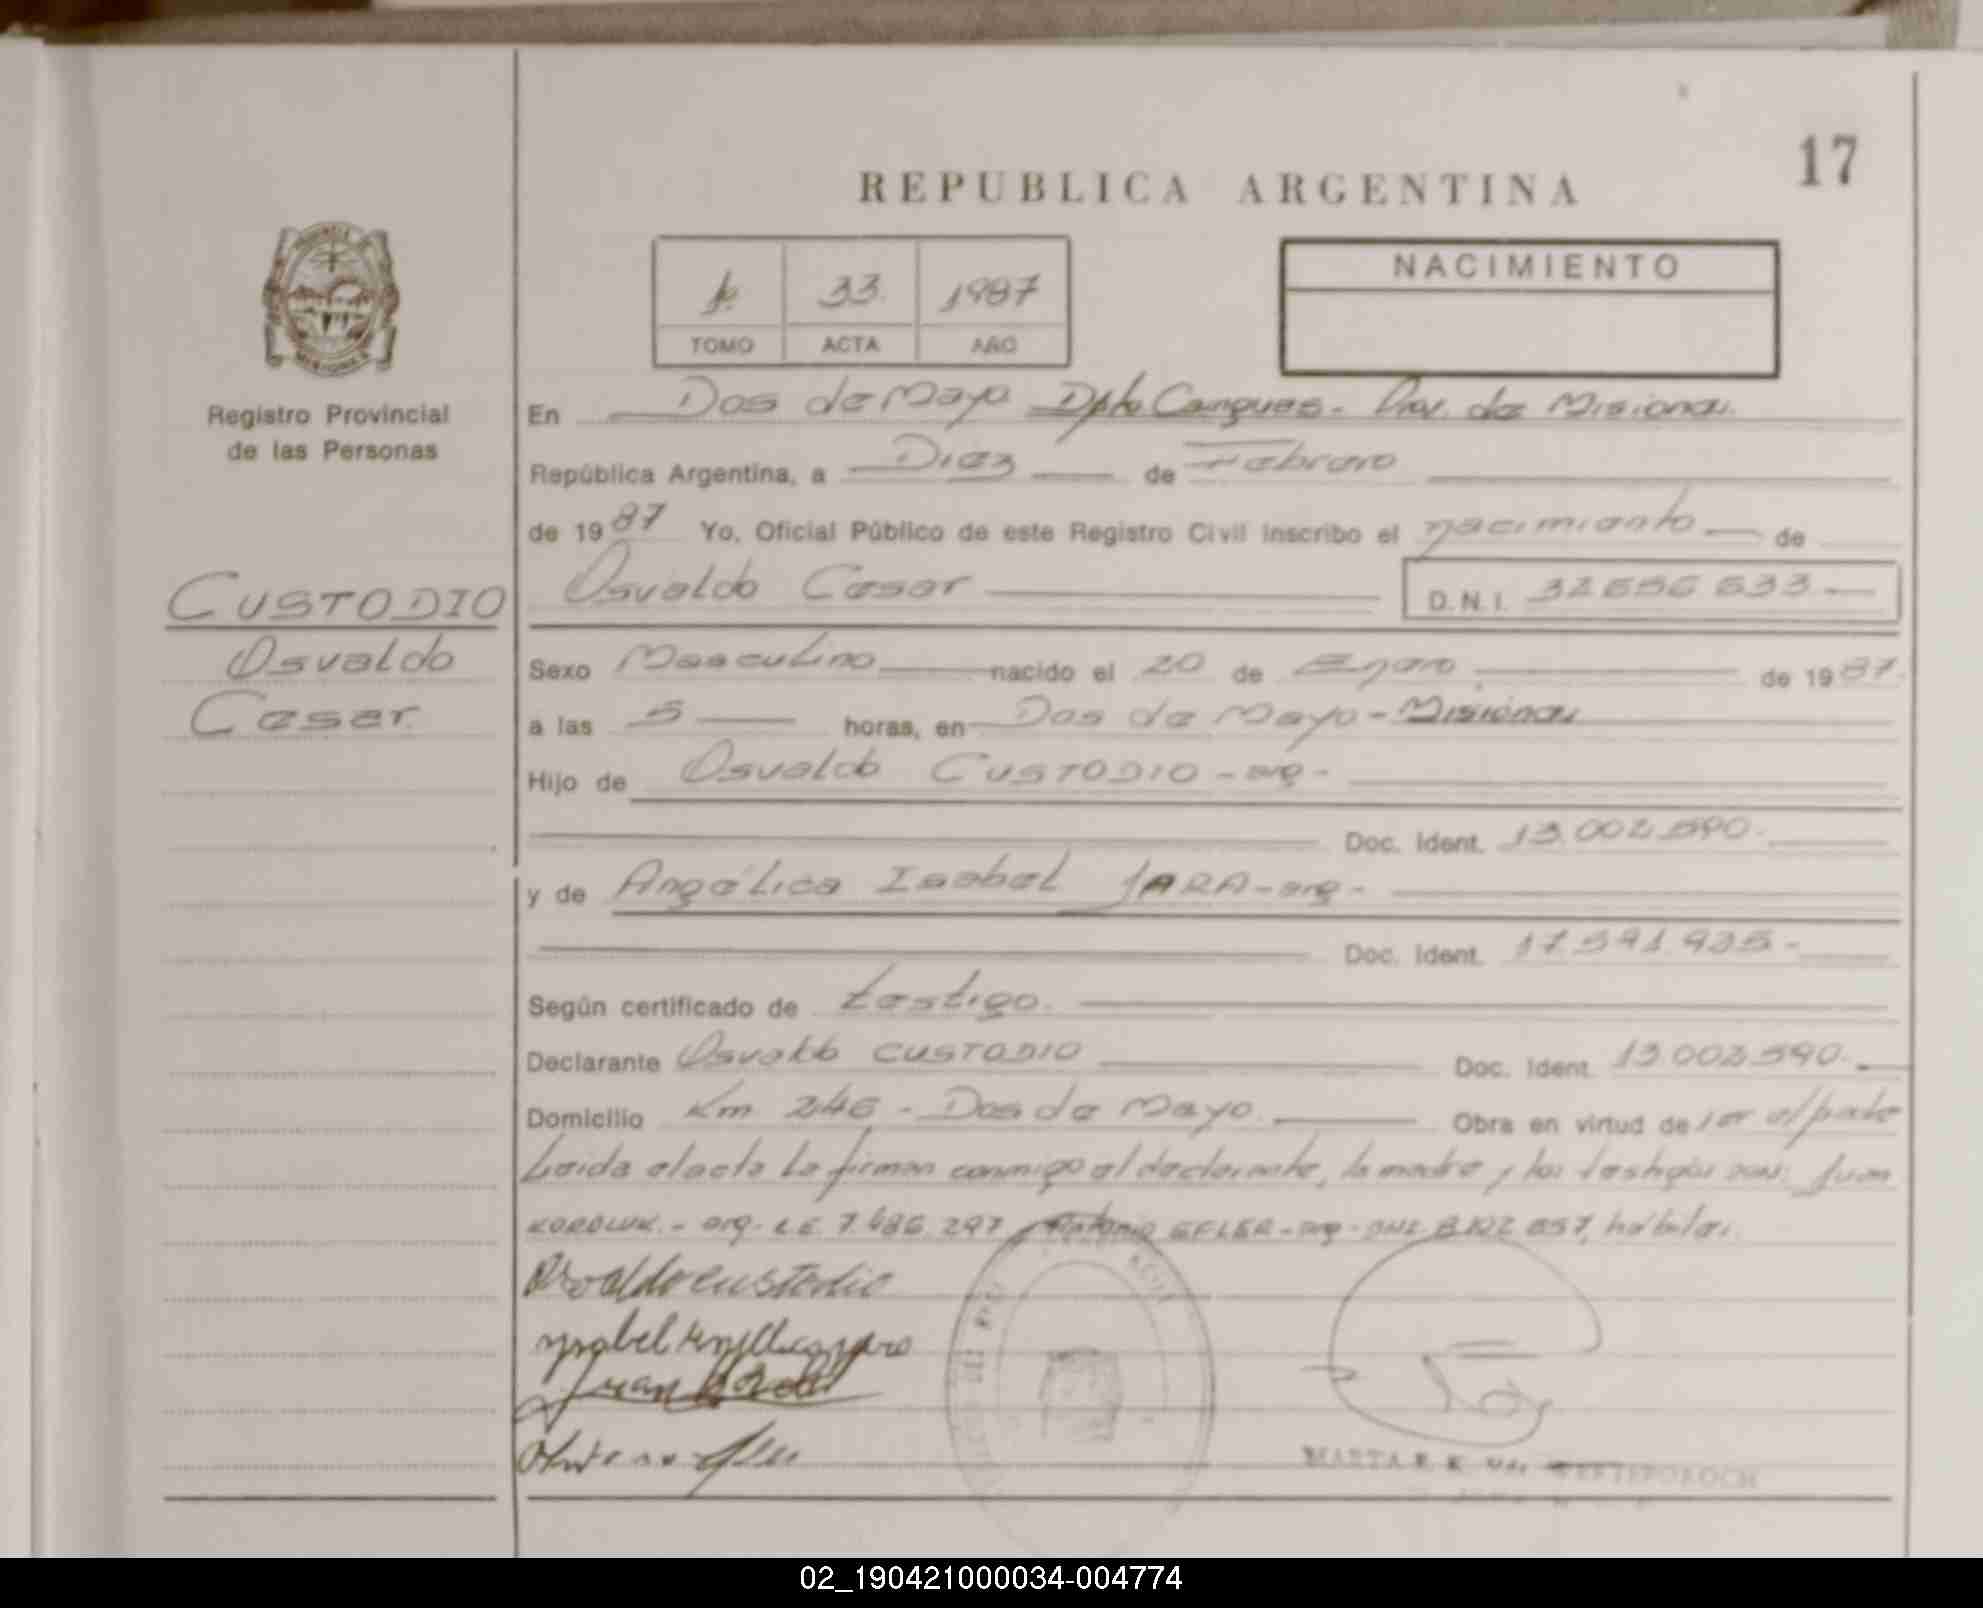 17
REPUBLICA ARGENTINA
1º 33. 1987
TOMO ACTA AÑO
NACIMIENTO
Registro Provincial
de las Personas
CUSTODIO
Osvaldo
Cesar.
En Dos de Mayo Dpto Cainguas - Prov. de Misiones.
República Argentina, a Diez de Febrero
de 1987 Yo, Oficial Público de este Registro Civil inscribo el nacimiento de
Osvaldo Cesar D.N.I.
Sexo Masculino nacido el 20 de Enero de 1987.
a las 5 horas, en Dos de Mayo - Misiones
Hijo de Osvaldo CUSTODIO - arg -
Doc. Ident. 13.002.590.
y de Angélica Isabel JARA - arg -
Doc. Ident. 17.591.935 -
Según certificado de testigo.
Declarante Osvaldo CUSTODIO Doc. Ident. 13.002.590.
Domicilio Km 246 - Dos de Mayo. Obra en virtud de ser el padre
Leida el acta la firman conmigo el declarante, la madre y los testigos Juan
KOROLUK. - arg - L.E. 7. 297 y Antonio EFLER - arg - DNI habiles.
Osvaldo custodio
Juan
MARTA
02_190421000034-004774